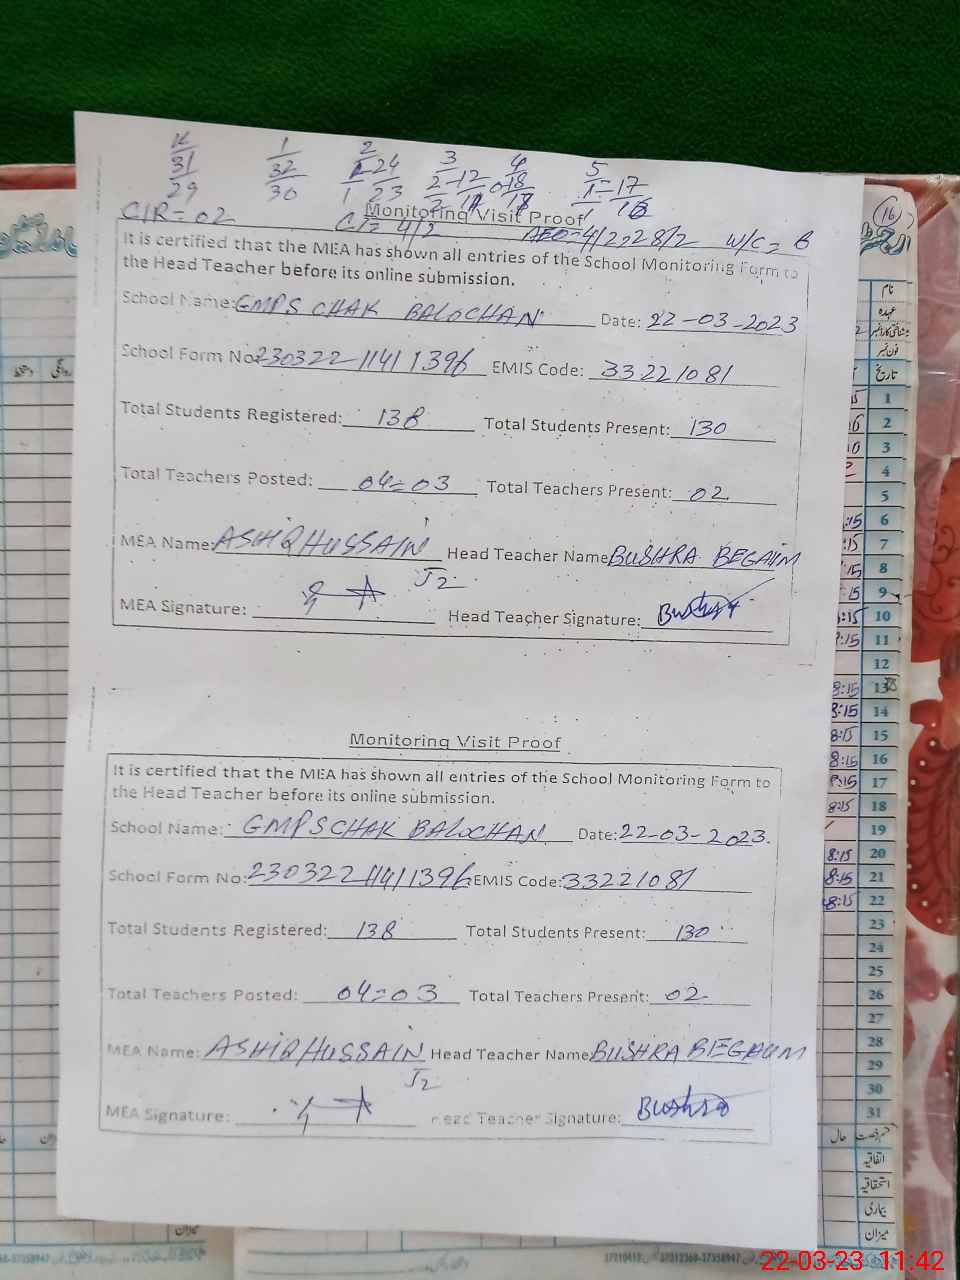 K 1 2 3 4 5
31 32 24 12 18 17
29 30 1 23 2 17
C/R = 02 Monitoring Visit Proof
AEO=4/2=28/2 W/C= B
It is certified that the MEA has shown all entries of the School Monitoring Form to
the Head Teacher before its online submission.
School Name: GMPS CHAK BALOCHAN Date: 22-03-2023
School Form No: 230322-11411396 EMIS Code: 33221081
Total Students Registered: 138 Total Students Present: 130
Total Teachers Posted: 04=03 Total Teachers Present: 02
MEA Name: ASHIQ HUSSAIN Head Teacher Name BUSHRA BEGAUM
J2
MEA Signature: Head Teacher Signature: Bushra
Monitoring Visit Proof
It is certified that the MEA has shown all entries of the School Monitoring Form to
the Head Teacher before its online submission.
School Name: GMPS CHAK BALOCHAN Date: 22-03-2023.
School Form No: 230322-11411396 EMIS Code: 33221081
Total Students Registered: 138 Total Students Present: 130
Total Teachers Posted: 04=03 Total Teachers Present: 02
MEA Name: ASHIQ HUSSAIN Head Teacher Name BUSHRA BEGAUM
J2
MEA Signature: Head Teacher Signature: Bushra
16
نام
عہدہ
فون نمبر
تاریخ
1
2
3
4
5
6
:15 7
:15 8
:15 9
8:15 10
8:15 11
12
8:15 13
8:15 14
8:15 15
8:15 16
8:15 17
8:15 18
19
8:15 20
8:15 21
8:15 22
23
24
25
26
27
28
29
30
31
حال
اتفاقیہ
استحقاقیہ
بیماری
میزان
22-03-23 11:42